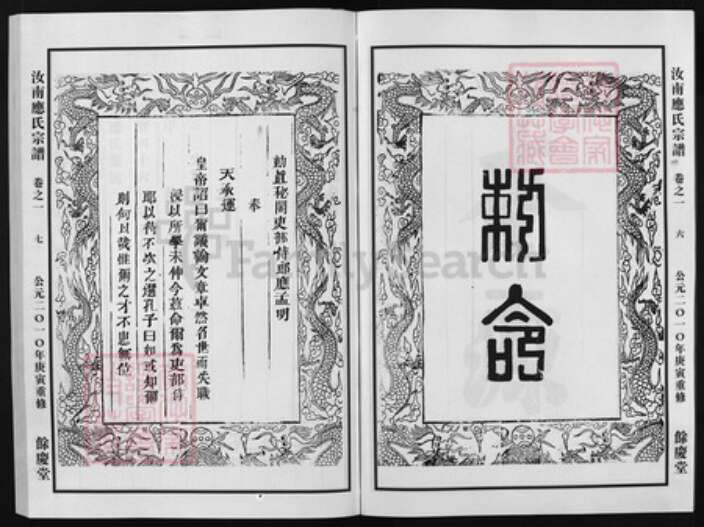 汝南應氏宗譜 卷之一 六 公元二〇一〇年庚寅重修 餘慶堂
敕命
勅直秘閣吏部侍郎應孟明
奉
天承運
皇帝詔曰爾議論文章卓然名世而失職
浸以所學未伸今茲命爾為吏部侍
郎以待不次之選孔子曰如或知爾
則何以哉惟爾之才不患無位
汝南應氏宗譜 卷之一 七 公元二〇一〇年庚寅重修 餘慶堂
FamilySearch